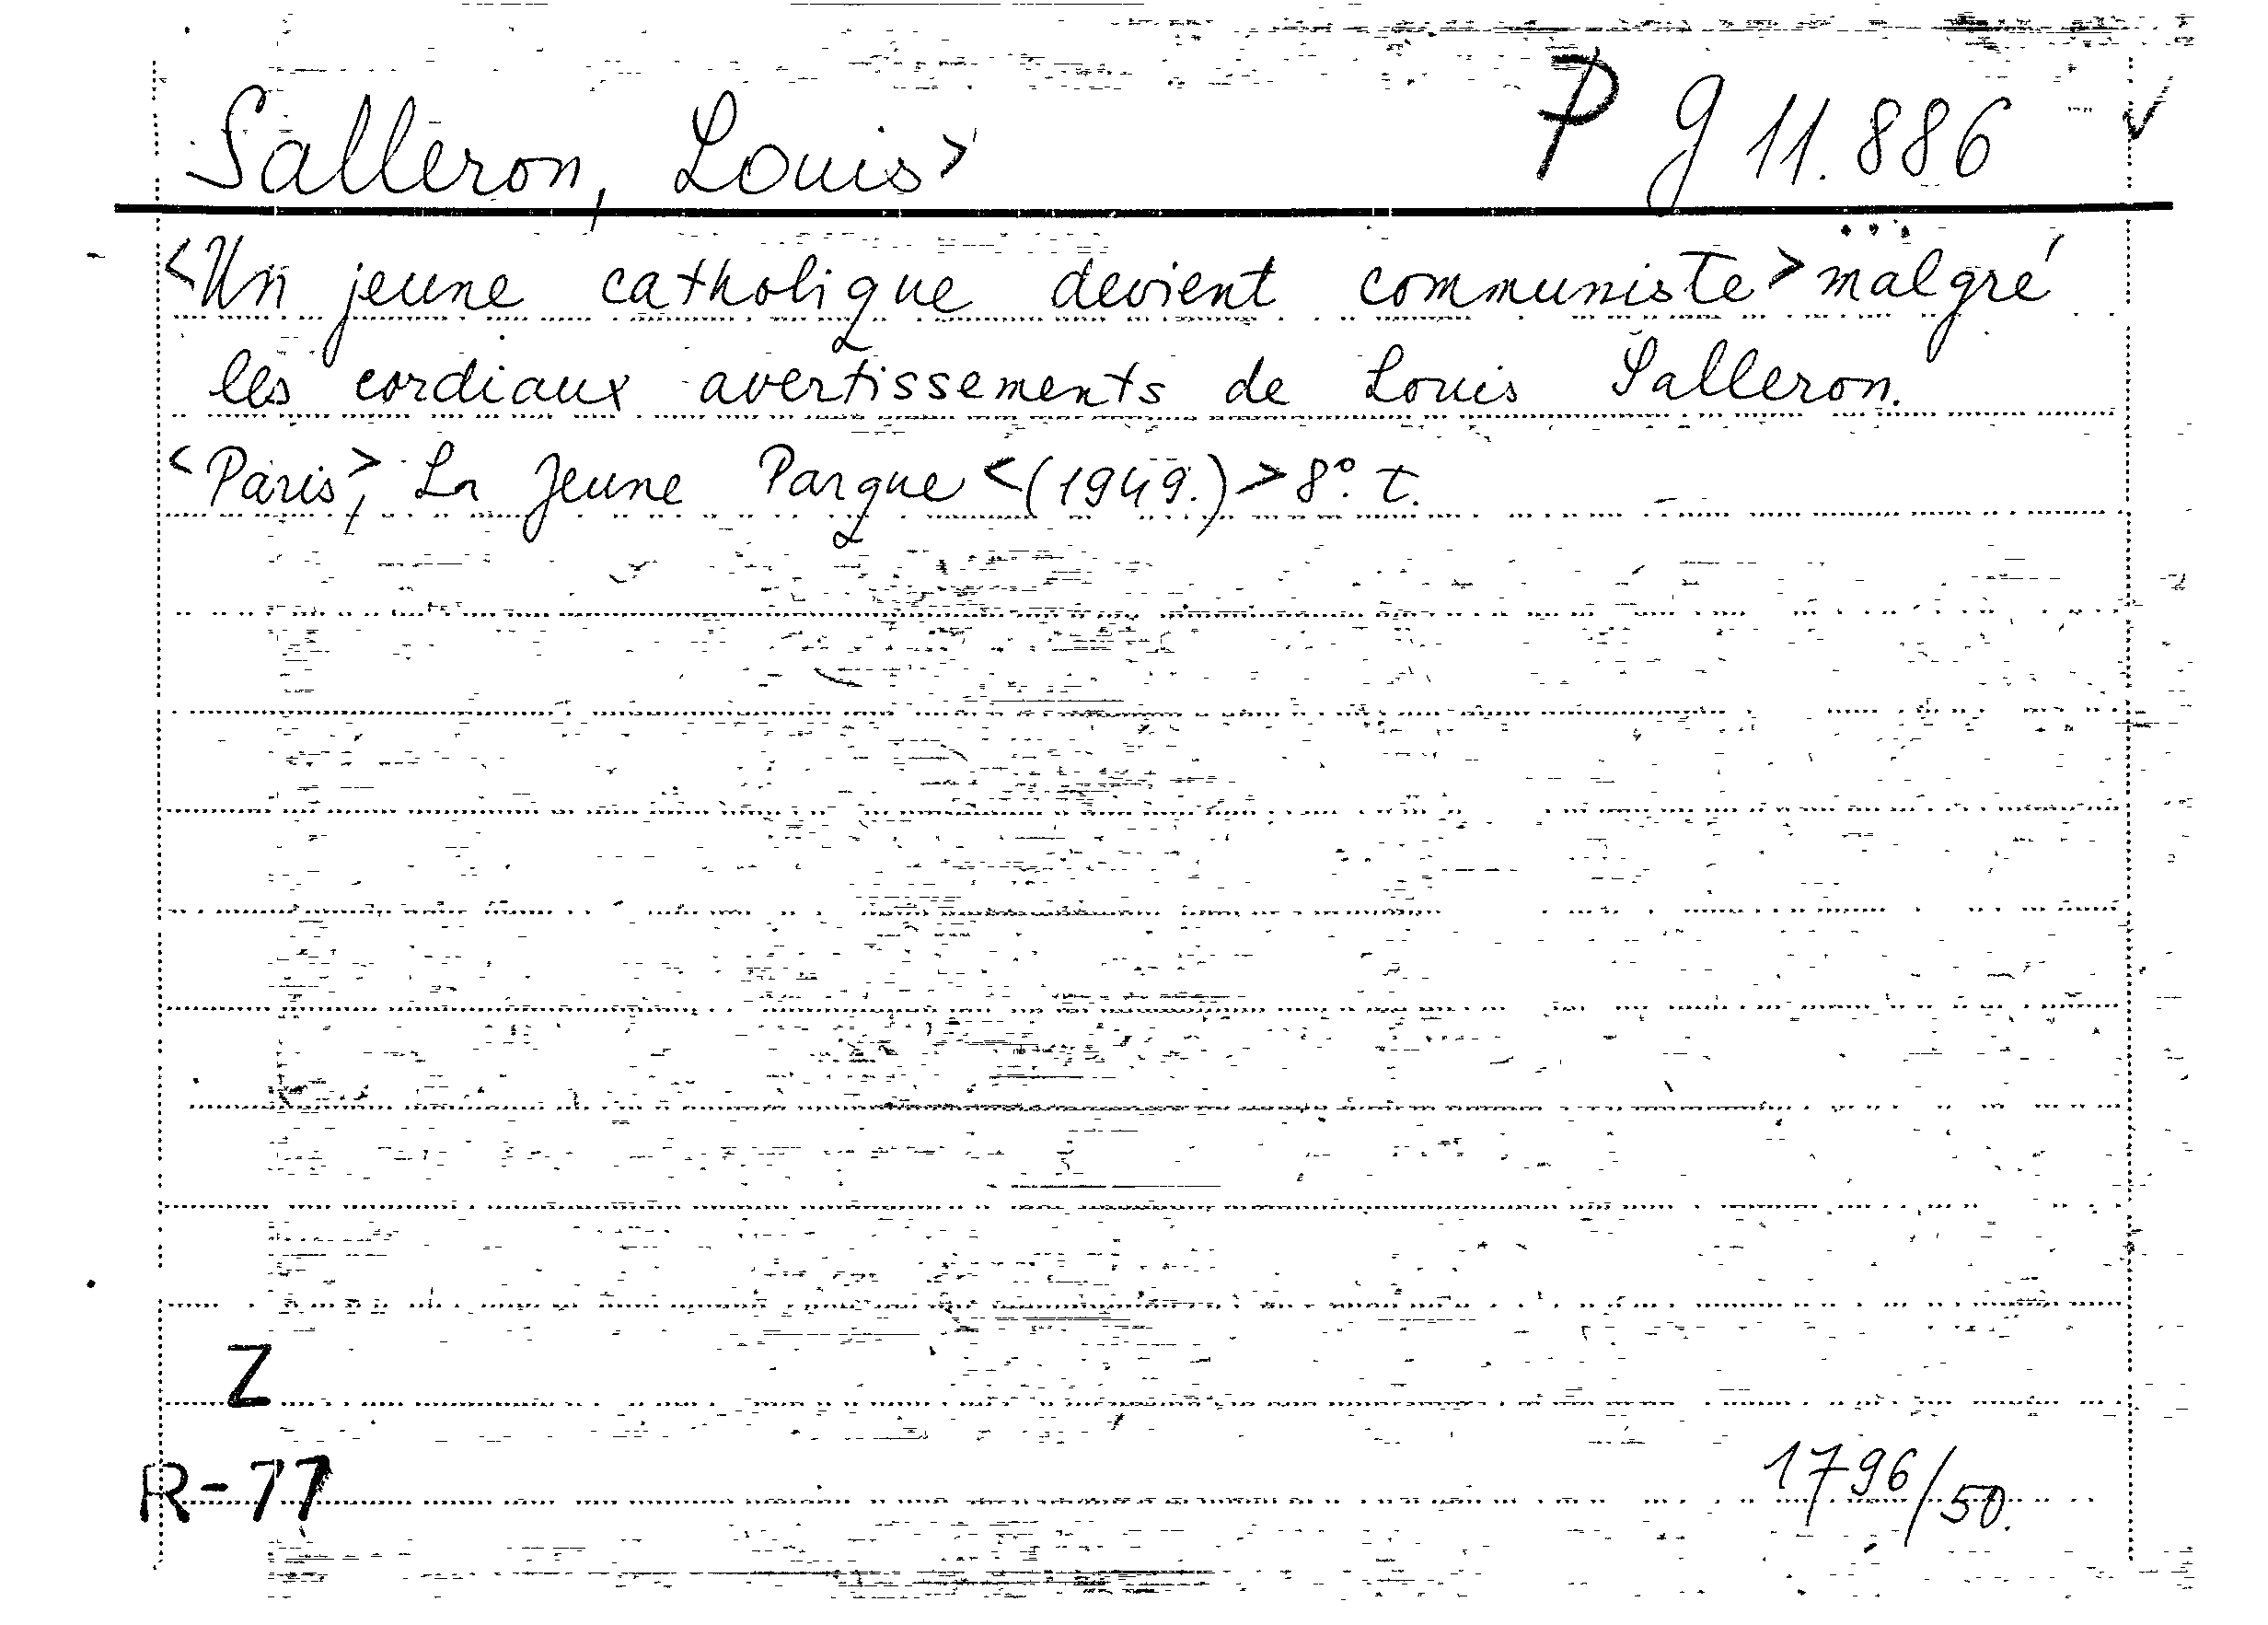 Salleron, Louis> P g 11.886 ✓
<Un jeune catholique devient communiste> malgré
les cordiaux avertissements de Louis Salleron.
<Paris>, La Jeune Parque <(1949.)> 8°. t.
Z
R-77
1796/50.